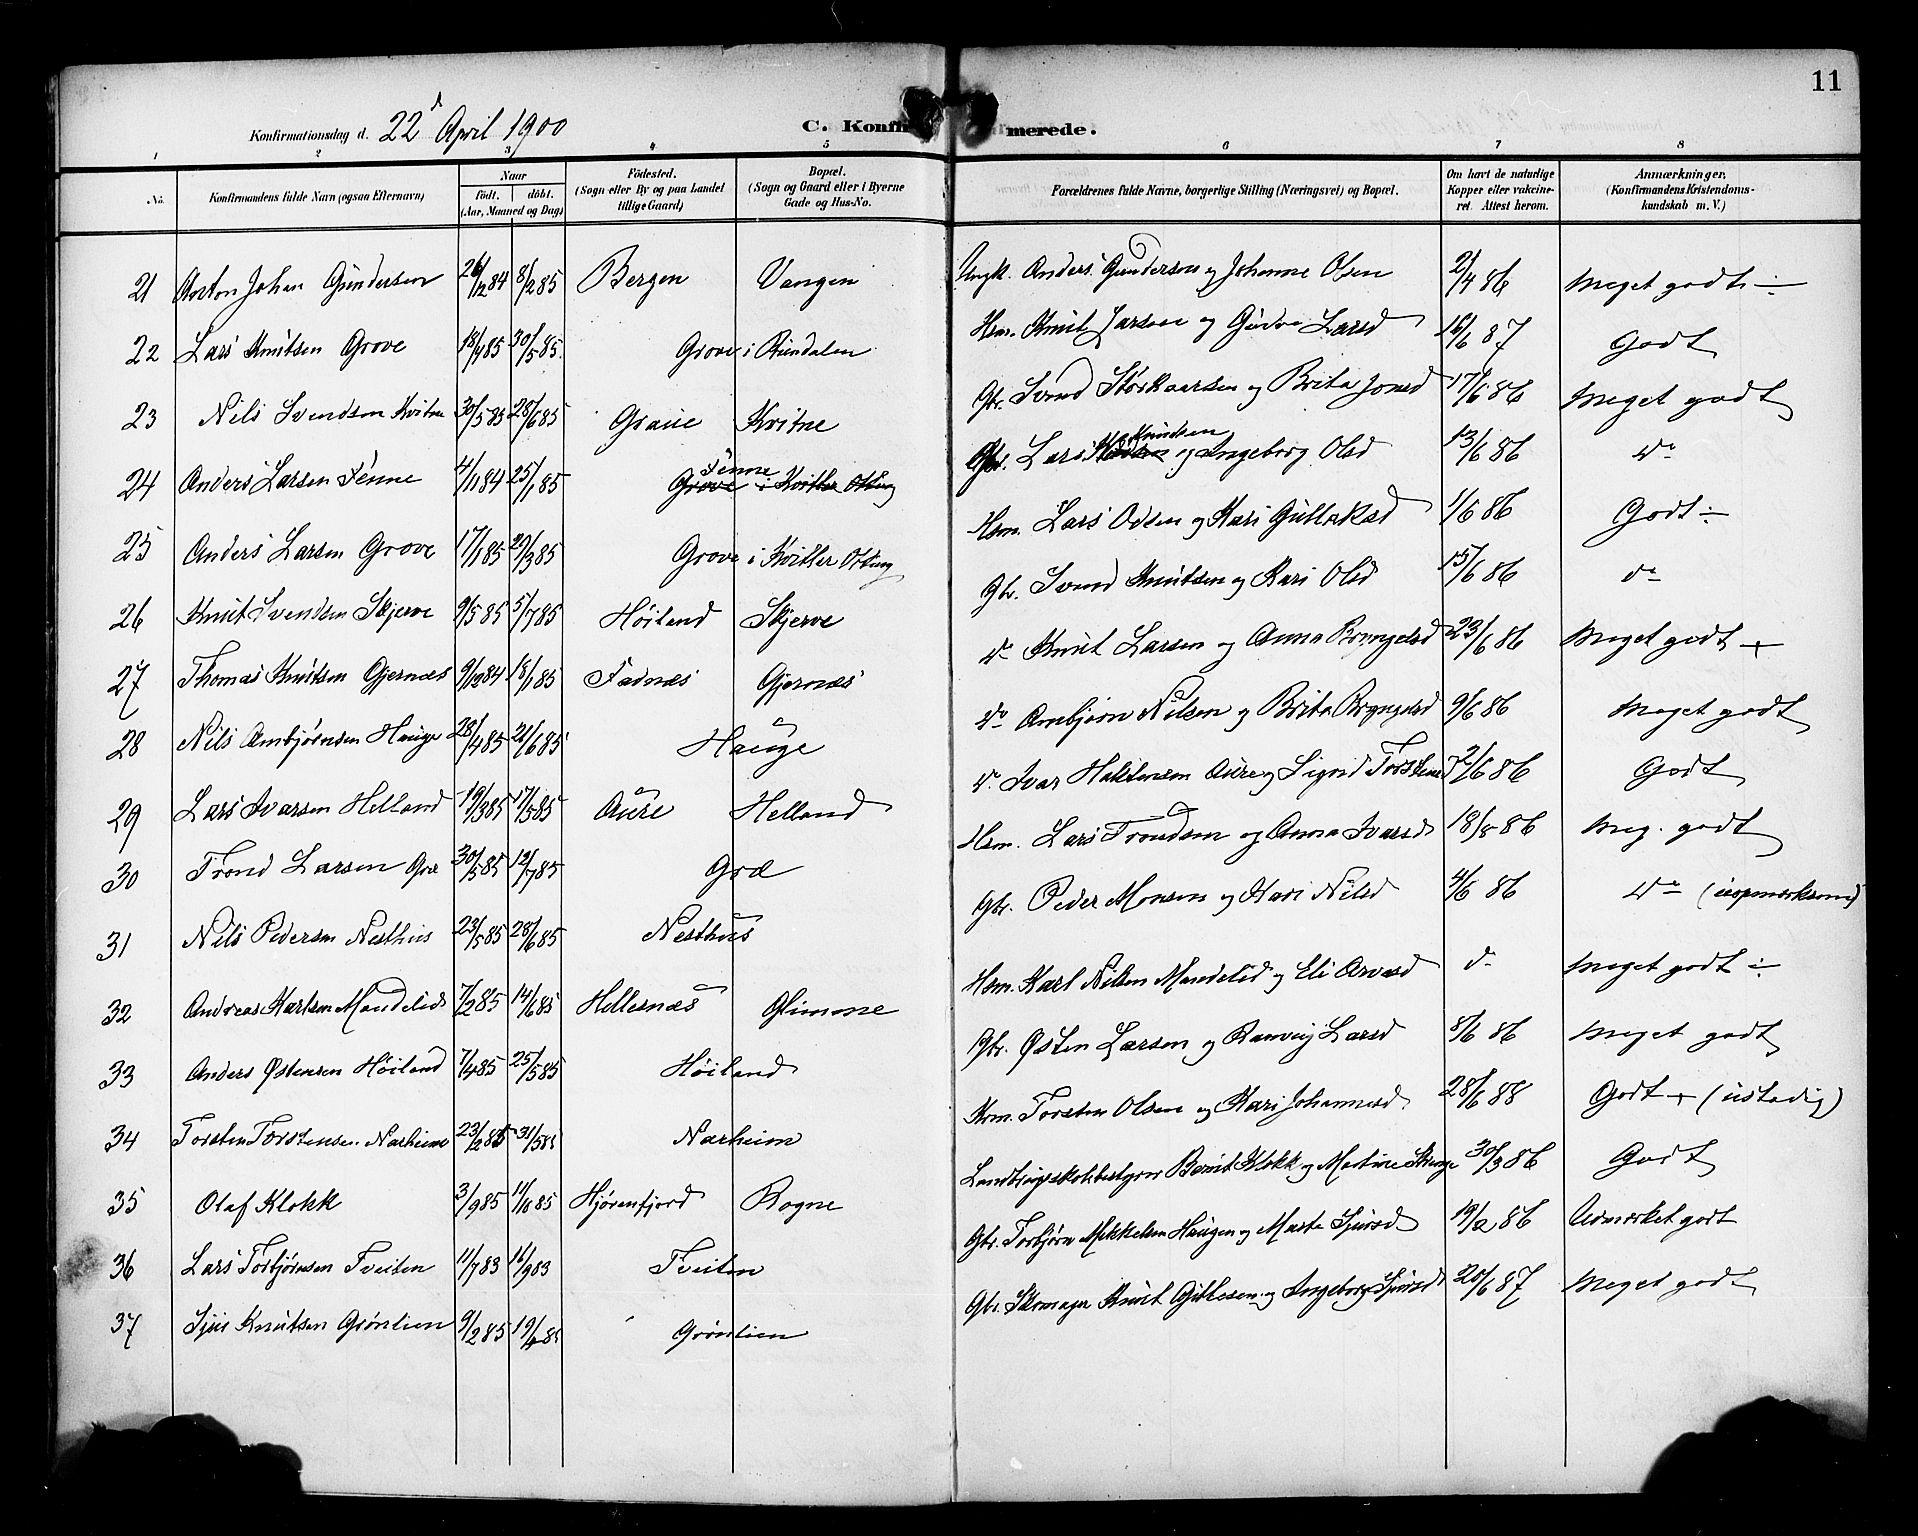 11
Konfirmationsdag d. 22d April 1900
C. Konfirmerede.
1 2 3 4 5 6 7 8
No.
Konfirmandens fulde Navn (ogsaa Efternavn)
Naar
født. døbt.
(Aar, Maaned og Dag)
Fødested.
(Sogn eller By og paa Landet
tillige Gaard)
Bopæl.
(Sogn og Gaard eller i Byerne
Gade og Hus-No.
Forældrenes fulde Navne, borgerlige Stilling (Næringsvei) og Bopæl.
Om havt de naturlige
Kopper eller vakcine-
ret. Attest herom.
Anmærkninger,
(Konfirmandens Kristendoms-
kundskab m. V.)
21 Anton Johan Gundersen 26/12 84 8/2 85 Bergen Vangen Ungk. Anders Gundersen og Johanne Olsen 2/4 86 Meget godt ÷
22 Lars Knutsen Grove 18/4 85 30/5 85 Grove i Rundalen Hsm. Knut Larsen og Gudve Larsd 16/6 87 Godt
23 Nils Svendsen Kvitne 30/5 85 28/6 85 Graue Kvitne Gbr. Svend Storkaarsen og Brita Jonsd 17/6 86 Meget godt
24 Anders Larsen Fenne 4/11 84 25/1 85 Fenne Grove i Kvitler Ottung Gbr. Lars Knudsen og Ingeborg Olsd 13/6 86 do
25 Anders Larsen Grove 17/1 85 29/3 85 Grove i Kvitler Ottung Hsm. Lars Odsen og Kari Gullaksd 1/6 86 Godt ÷
26 Knut Svendsen Skjerve 9/5 85 5/7 85 Høiland Skjerve Gbr. Svend Knutsen og Kari Olsd 15/6 86 do
27 Thomas Knutsen Gjernæs 9/12 84 18/1 85 Fadnæs Gjernæs do Knut Larsen og Anna Brynjelsd 23/6 86 Meget godt +
28 Nils Arnbjørnsen Hauge 28/4 85 21/6 85 Hauge do Arnbjørn Nilsen og Brita Bryngelsd 9/6 86 Meget godt
29 Lars Ivarsen Helland 19/3 85 17/5 85 Aure Helland do Ivar Halstensen Aure og Sigrid Torstensd 2/6 86 Godt
30 Trond Larsen Græ 30/5 85 12/7 85 Græ Hsm. Lars Trondsen og Anna Ivarsd 18/8 86 Meg. godt
31 Nils Pedersen Nesthus 23/5 85 28/6 85 Nesthus Gbr. Peder Monsen og Kari Nilsd 4/6 86 do (uopmerksom)
32 Andreas Karlsen Mandelid 7/2 85 14/6 85 Hellesnæs Glimme Hsm. Karl Nilsen Mandelid og Eli Arvesd do Meget godt ÷
33 Anders Østensen Høiland 7/4 85 25/5 85 Høiland Gbr. Østen Larsen og Ranveig Larsd 8/6 86 Meget godt
34 Torsten Torstensen Narheim 23/2 85 31/5 85 Narheim Hsm. Torsten Olsen og Kari Johannesd 28/6 88 Godt + (ustadig)
35 Olaf Klokk 3/9 85 11/10 85 Hjørenfjord Rogne Landbrugsskolebestyrer Bernt Klokk og Martine Strenge 30/3 86 Godt
36 Lars Torbjørnsen Tveiten 11/7 83 16/9 83 Tveiten Gbr. Torbjørn Mikkelsen Haugen og Marta Sjursd 19/2 86 Udmærket godt
37 Sjur Knutsen Grønlien 9/2 85 19/4 85 Grønlien Gbr. Skomager Knut Gitlesen og Ingeborg Sjursd 20/6 87 Meget godt